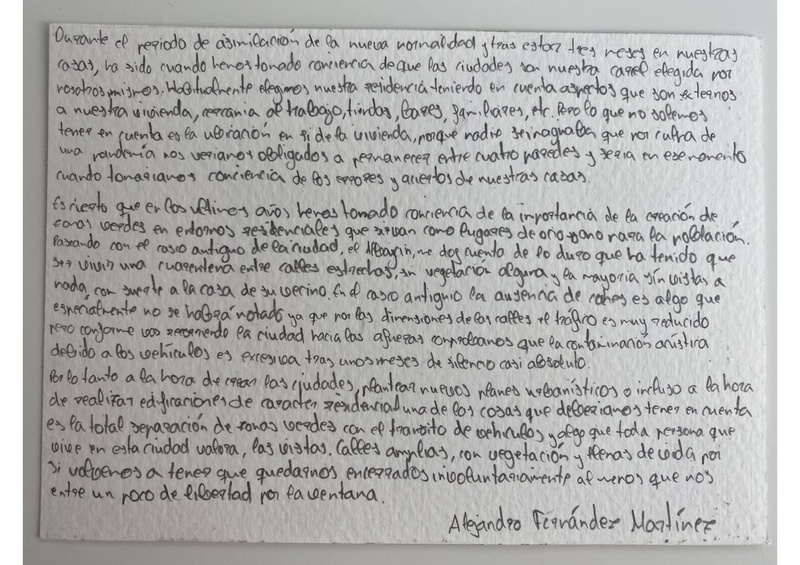 Durante el periodo de asimilación de la nueva normalidad y tras estar tres meses en nuestras
casas, ha sido cuando hemos tomado conciencia de que las ciudades son nuestra carcel elegida por
nosotros mismos. Habitualmente elegimos nuestra residencia teniendo en cuenta aspectos que son externos
a nuestra vivienda, cercania al trabajo, tiendas, bares, familiares, etc. Pero lo que no solemos
tener en cuenta es la ubicación en si de la vivienda, porque nadie se imaginaba que por culpa de
una pandemia nos veriamos obligados a permanecer entre cuatro paredes y seria en ese momento
cuando tomariamos conciencia de los errores y aciertos de nuestras casas.
Es cierto que en los ultimos años hemos tomado conciencia de la importancia de la creación de
zonas verdes en entornos residenciales que sirvan como lugares de ocio sano para la población.
Paseando con el casco antiguo de la ciudad, el Albaicín, me doy cuenta de lo duro que ha tenido que
ser vivir una cuarentena entre calles estrechas, sin vegetación alguna y la mayoria sin vistas a
nada, con suerte a la casa de su vecino. En el casco antiguo la ausencia de coches es algo que
especialmente no se habrá notado ya que por las dimensiones de las calles el tráfico es muy reducido
pero conforme vas recorriendo la ciudad hacia las afueras comprobamos que la contaminación acústica
debido a los vehículos es excesiva tras unos meses de silencio casi absoluto.
Por lo tanto a la hora de crear las ciudades, plantear nuevos planes urbanísticos o incluso a la hora
de realizar edificaciones de caracter residencial una de las cosas que deberiamos tener en cuenta
es la total separación de zonas verdes con el transito de vehiculos y algo que toda persona que
vive en esta ciudad valora, las vistas. Calles amplias, con vegetación y llenas de vida por
si volvemos a tener que quedarnos encerrados involuntariamente al menos que nos
entre un poco de libertad por la ventana.
Alejandro Fernández Martínez